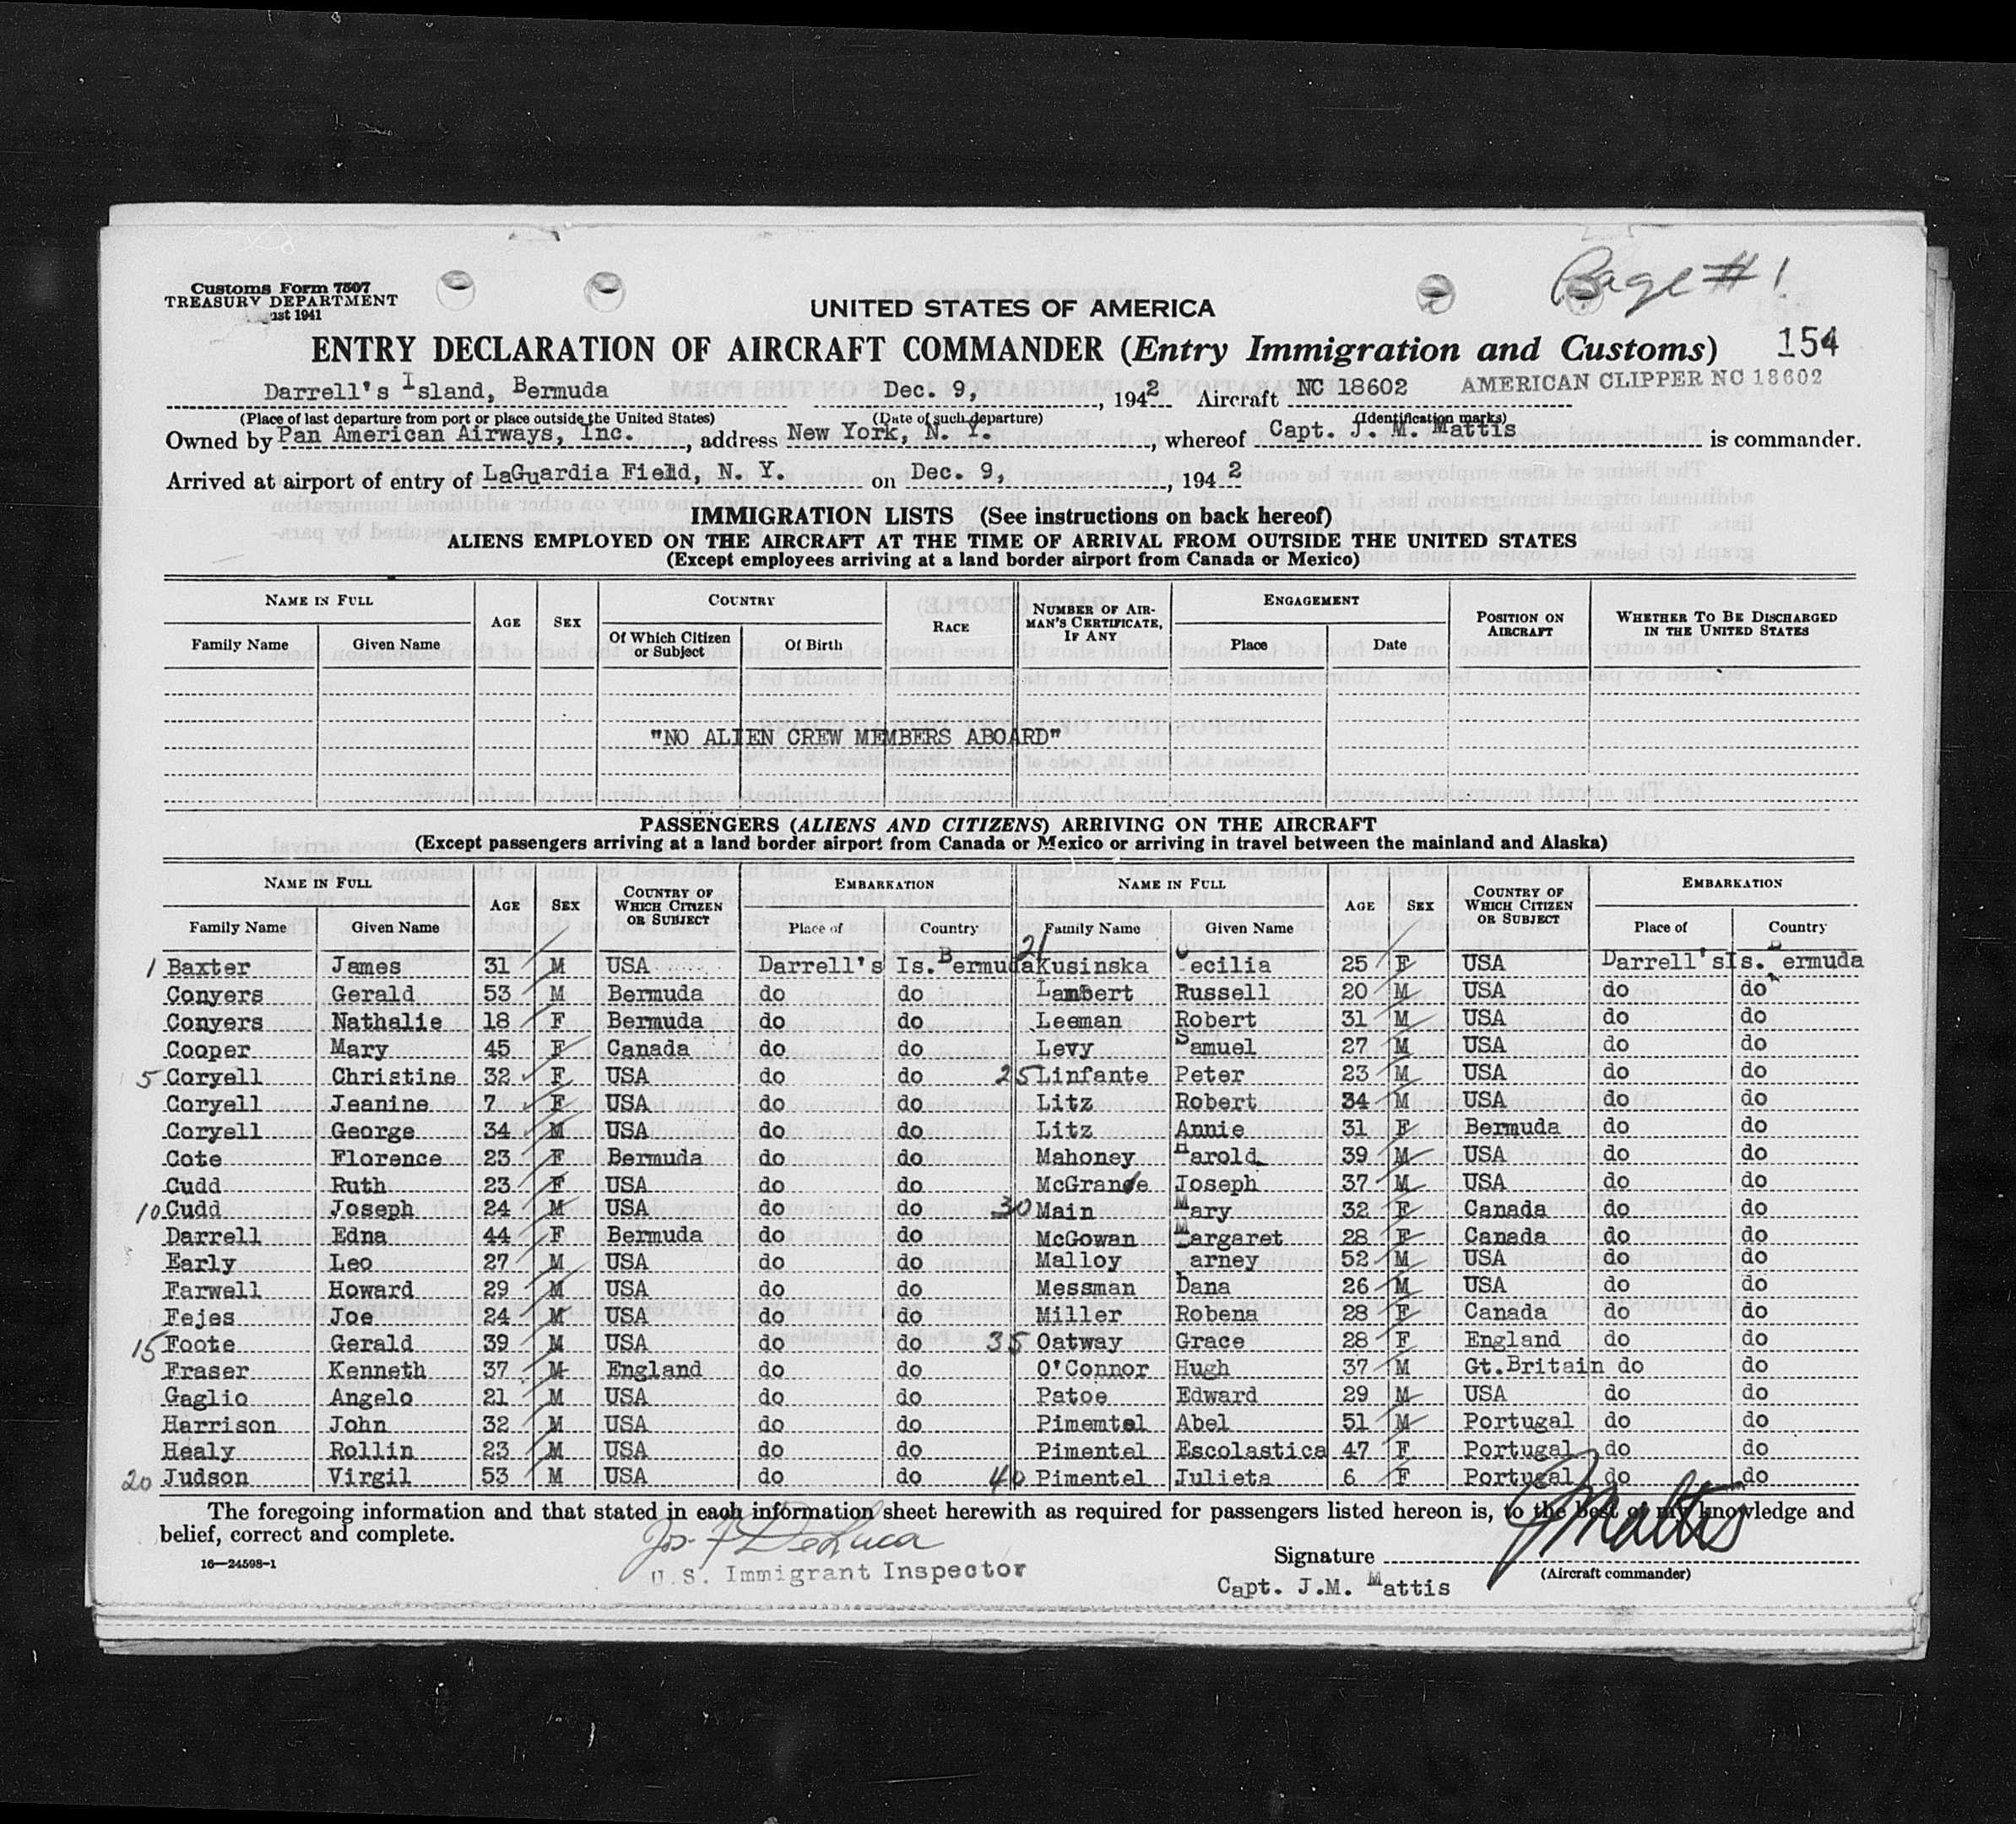 Page #1
Customs Form 7507
TREASURY DEPARTMENT
ust 1941
UNITED STATES OF AMERICA
ENTRY DECLARATION OF AIRCRAFT COMMANDER (Entry Immigration and Customs) 154
Darrell's Island, Bermuda Dec. 9, , 1942 Aircraft NC 18602 AMERICAN CLIPPER NC 18602
(Place of last departure from port or place outside the United States) (Date of such departure) (Identification marks)
Owned by Pan American Airways, Inc. , address New York, N. Y. , whereof Capt. J. M. Mattis is commander.
Arrived at airport of entry of LaGuardia Field, N. Y. on Dec. 9, , 1942
IMMIGRATION LISTS (See instructions on back hereof)
ALIENS EMPLOYED ON THE AIRCRAFT AT THE TIME OF ARRIVAL FROM OUTSIDE THE UNITED STATES
(Except employees arriving at a land border airport from Canada or Mexico)
NAME IN FULL AGE SEX COUNTRY RACE NUMBER OF AIRMAN'S CERTIFICATE, IF ANY ENGAGEMENT POSITION ON AIRCRAFT WHETHER TO BE DISCHARGED IN THE UNITED STATES
Family Name Given Name Of Which Citizen or Subject Of Birth Place Date
"NO ALIEN CREW MEMBERS ABOARD"
PASSENGERS (ALIENS AND CITIZENS) ARRIVING ON THE AIRCRAFT
(Except passengers arriving at a land border airport from Canada or Mexico or arriving in travel between the mainland and Alaska)
NAME IN FULL AGE SEX COUNTRY OF WHICH CITIZEN OR SUBJECT EMBARKATION NAME IN FULL AGE SEX COUNTRY OF WHICH CITIZEN OR SUBJECT EMBARKATION
Family Name Given Name Place of Country Family Name Given Name Place of Country
1 Baxter James 31 M USA Darrell's Is. Bermuda 21 Kusinska Cecilia 25 F USA Darrell's Is. Bermuda
Conyers Gerald 53 M Bermuda do do Lambert Russell 20 M USA do do
Conyers Nathalie 18 F Bermuda do do Leeman Robert 31 M USA do do
Cooper Mary 45 F Canada do do Levy Samuel 27 M USA do do
5 Coryell Christine 32 F USA do do 25 Linfante Peter 23 M USA do do
Coryell Jeanine 7 F USA do do Litz Robert 34 M USA do do
Coryell George 34 M USA do do Litz Annie 31 F Bermuda do do
Cote Florence 23 F Bermuda do do Mahoney Harold 39 M USA do do
Cudd Ruth 23 F USA do do McGrande Joseph 37 M USA do do
10 Cudd Joseph 24 M USA do do 30 Main Mary 32 F Canada do do
Darrell Edna 44 F Bermuda do do McGowan Margaret 28 F Canada do do
Early Leo 27 M USA do do Malloy arney 52 M USA do do
Farwell Howard 29 M USA do do Messman Dana 26 M USA do do
Fejes Joe 24 M USA do do Miller Robena 28 F Canada do do
15 Foote Gerald 39 M USA do do 35 Oatway Grace 28 F England do do
Fraser Kenneth 37 M England do do O'Connor Hugh 37 M Gt.Britain do do
Gaglio Angelo 21 M USA do do Patoe Edward 29 M USA do do
Harrison John 32 M USA do do Pimemtel Abel 51 M Portugal do do
Healy Rollin 23 M USA do do Pimentel Escolastica 47 F Portugal do do
20 Judson Virgil 53 M USA do do 40 Pimentel Julieta 6 F Portugal do do
The foregoing information and that stated in each information sheet herewith as required for passengers listed hereon is, to the best of my knowledge and
belief, correct and complete.
Jos. F DeLuca
U.S. Immigrant Inspector
Signature JMattis
(Aircraft commander)
Capt. J.M. Mattis
16—24598-1